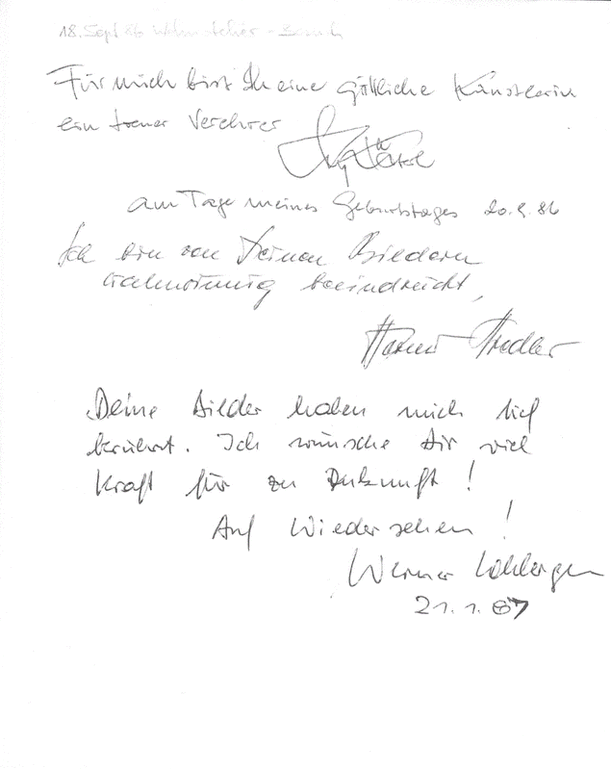 18. Sept 86
Für mich bist Du eine göttliche Künstlerin
ein treuer Verehrer
am Tage meines Geburtstages 20.9.86
Ich bin von Deinen Bildern
wahnsinnig beeindruckt,
Deine Bilder haben mich tief
berührt. Ich wünsche Dir viel
Kraft für zu Zukunft!
Auf Wiedersehen!
Werner
21.1.87